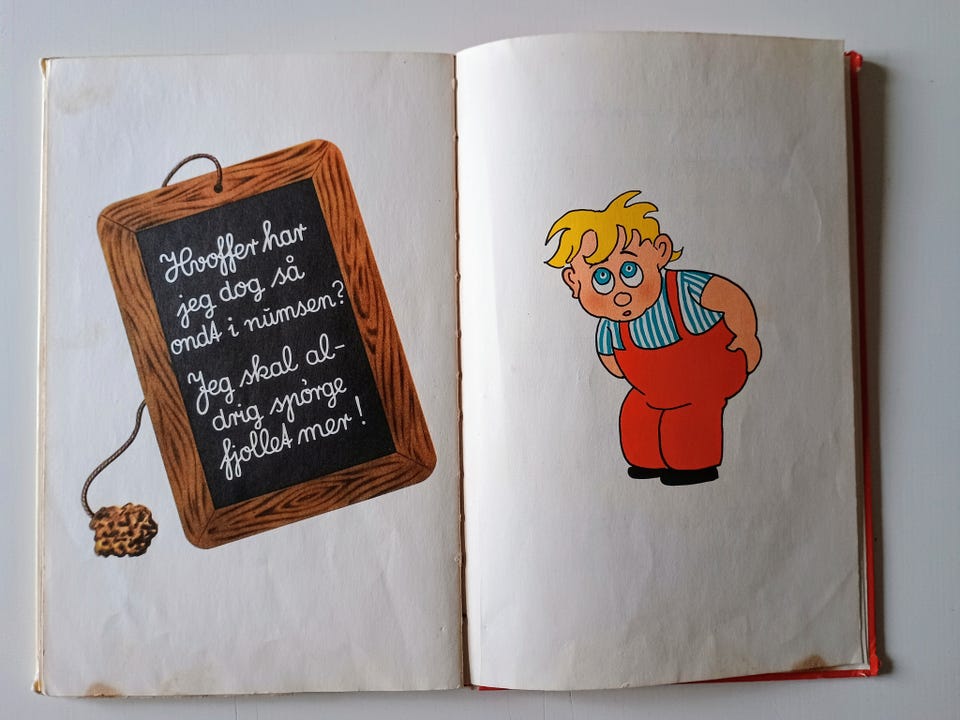 Hvoffer har
jeg dog så
ondt i nŭmsen?
Jeg skal al-
drig spòrge
fjollet mer!